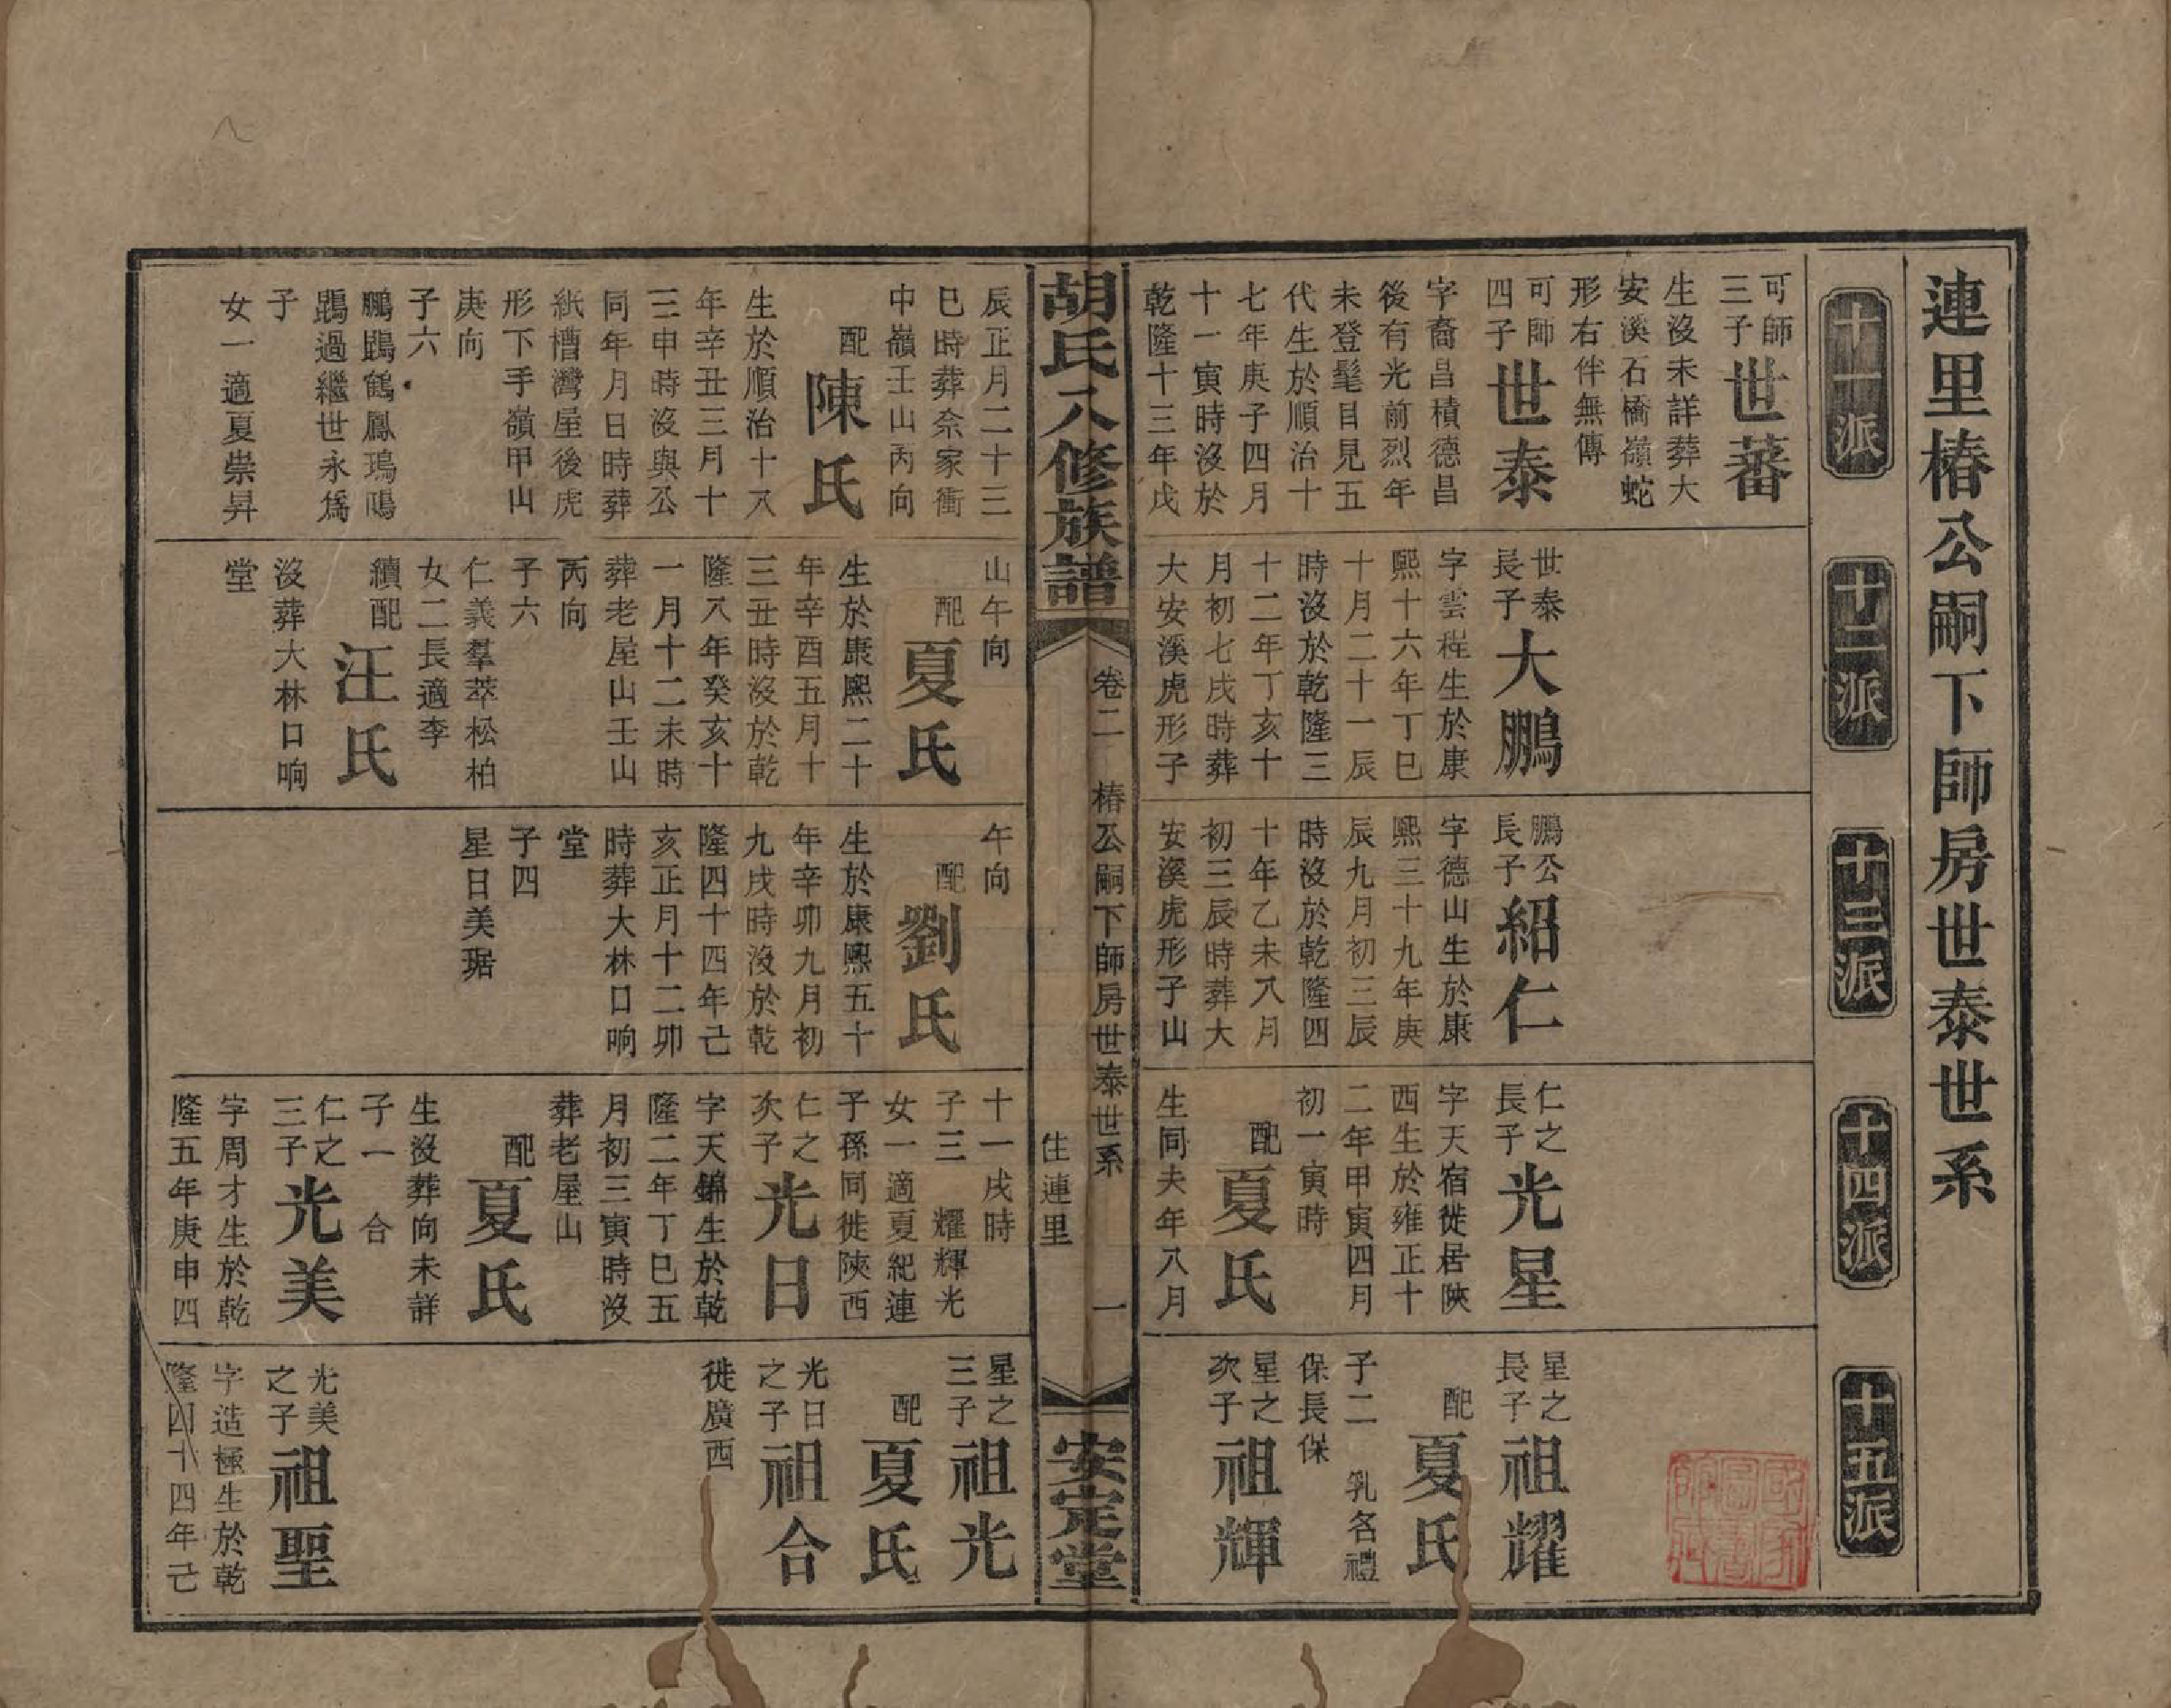 連里椿公嗣下師房世泰世系
十一派
十二派
十三派
十四派
十五派
可師
三子
世蕃
生沒未詳葬大
安溪石橋嶺蛇
形右伴無傳
可師
四子
世泰
字裔昌積德昌
後有光前烈年
未登髦目見五
代生於順治十
七年庚子四月
十一寅時沒於
乾隆十三年戊
世泰
長子
大鵬
字雲程生於康
熙十六年丁巳
十月二十一辰
時沒於乾隆三
十二年丁亥十
月初七戌時葬
大安溪虎形子
鵬公
長子
紹仁
字德山生於康
熙三十九年庚
辰九月初三辰
時沒於乾隆四
十年乙未八月
初三辰時葬大
安溪虎形子山
仁之
長子
光星
字天宿徙居陝
西生於雍正十
二年甲寅四月
初一寅時
配
夏氏
生同夫年八月
星之
長子
祖耀
配
夏氏
子二 乳名禮
保長保
星之
次子
祖輝
胡氏八修族譜
卷二 椿公嗣下師房世泰世系 一
住連里
安定堂
辰正月二十三
巳時葬佘家衝
中嶺壬山丙向
配
陳氏
生於順治十八
年辛丑三月十
三申時沒與公
同年月日時葬
紙槽灣屋後虎
形下手嶺甲山
庚向
子六
鵬鵾鶴鳳鴻鳴
鵾過繼世永爲
子
女一適夏崇昇
山午向
配
夏氏
生於康熙二十
年辛酉五月十
三丑時沒於乾
隆八年癸亥十
一月十二未時
葬老屋山壬山
丙向
子六
仁義羣萃松柏
女二長適李
續配
汪氏
沒葬大林口响
堂
午向
配
劉氏
生於康熙五十
年辛卯九月初
九戌時沒於乾
隆四十四年己
亥正月十二卯
時葬大林口响
堂
子四
星日美琚
十一戌時
子三 耀輝光
女一適夏紀連
子孫同徙陝西
仁之
次子
光日
字天錦生於乾
隆二年丁巳五
月初三寅時沒
葬老屋山
配
夏氏
生沒葬向未詳
子一 合
仁之
三子
光美
字周才生於乾
隆五年庚申四
星之
三子
祖光
配
夏氏
光日
之子
祖合
徙廣西
光美
之子
祖聖
字造極生於乾
隆四十四年己